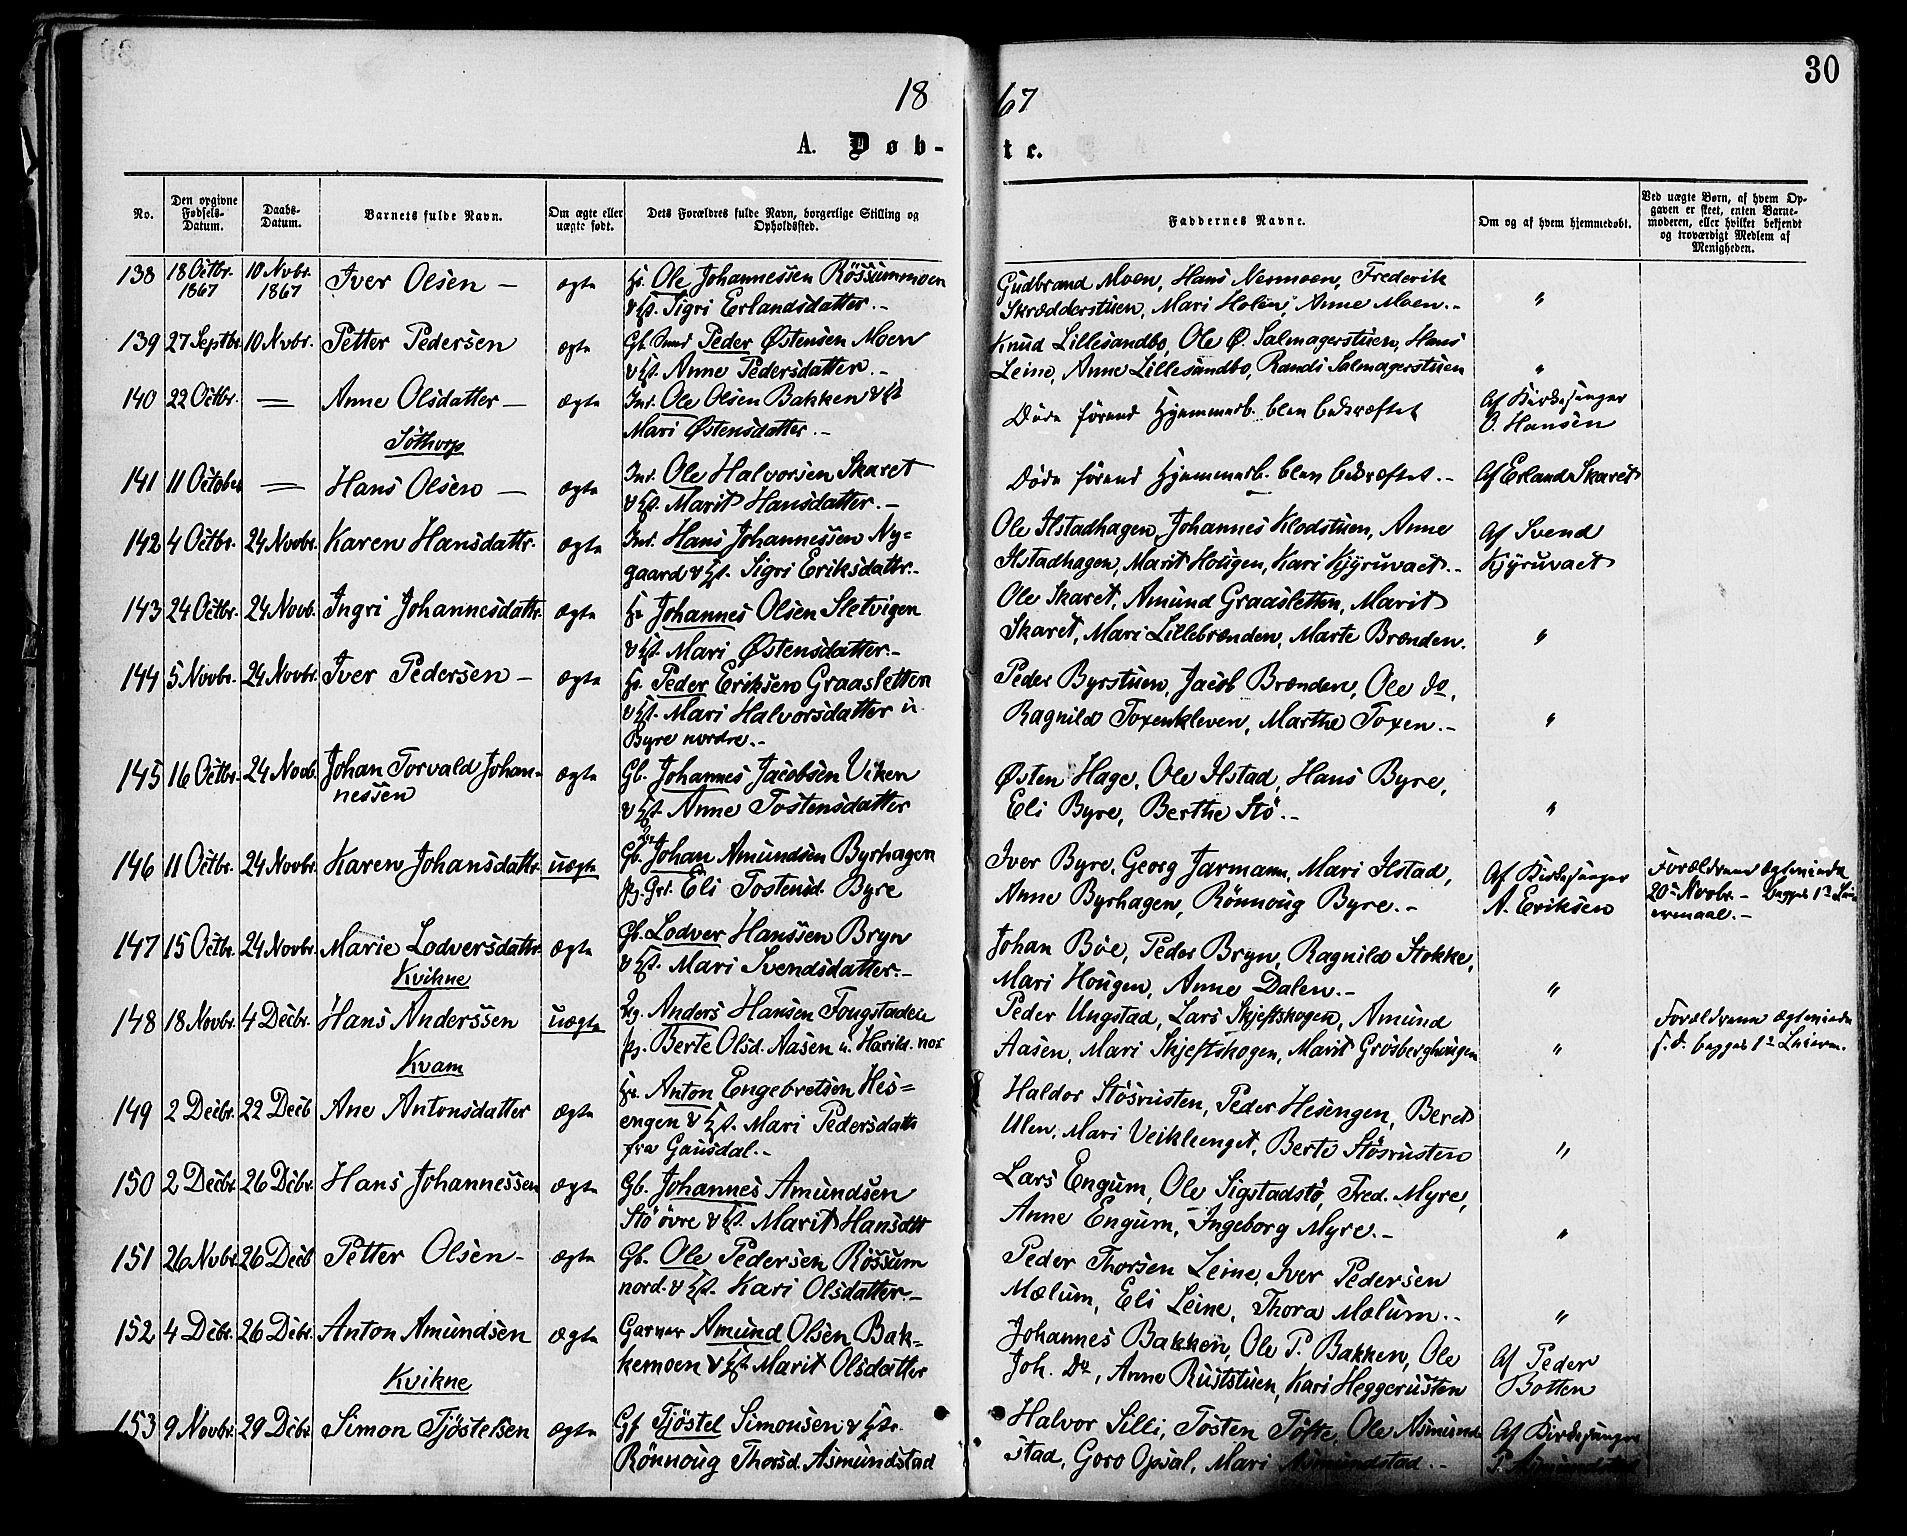 30
1867
A. Døbte.
No.
Den opgivne Fødsels-Datum.
Daabs-Datum.
Barnets fulde Navn.
Om ægte eller uægte født.
Dets Forældres fulde Navn, borgerlige Stilling og Opholdssted.
Faddernes Navne.
Om og af hvem hjemmedøbt.
Ved uægte Børn, af hvem Opgaven er skeet, enten Barnemoderen, eller hvilket bekjendt og troværdigt Medlem af Menigheden.
138 18 Octbr. 1867 10 Nvbr. 1867 Iver Olsen — ægte Ole Johannessen Rössummoen
Sigri Erlandsdatter.-
Gudbrand Moen, Hans Nermoen, Frederik
Skrædderstuen, Mari Holen, Anne Moen.- "
139 27 Septbr. 10 Nvbr. Petter Pedersen ægte Peder Østensen Moen
Anne Pedersdatter.-
Knud Lillesandbo, Ole Ø. Salmagerstuen, Hans
Leine, Anne Lillesandbo, Randi Salmagerstuen "
140 22 Octbr. — Anne Olsdatter — ægte Ind. Ole Olsen Bakken
Mari Østensdatter.-
Døde førend Hjemmedb. blev bekræftet
Af Kirkesanger
O. Hansen
Söthorp
141 11 October — Hans Olsen — ægte Ind. Ole Halvorsen Skaret
Marit Hansdatter.-
Døde førend Hjemmedb. blev bekræftet.- Af Erland Skaret
142 4 Octbr. 24 Novbr. Karen Hansdattr. ægte Ind. Hans Johannessen Ny=
gaard Sigri Eriksdattr.-
Ole Ilstadhagen, Johannes Klodstuen, Anne
Ilstadhagen, Marit Hougen, Kari Kjyruvaet.-
Af Svend
Kjyruvaet
143 24 Octbr. 24 Novb. Ingri Johannesdattr. ægte Johannes Olsen Sletvigen
Mari Østensdatter.-
Ole Skaret, Amund Graasletten, Marit
Skaret, Mari Lillebrænden, Marte Brænden. "
144 5 Novbr. 24 Novbr. Iver Pedersen — ægte Peder Eriksen Graasletten
Mari Halvorsdatter u.
Byre nordre.-
Peder Byrstuen, Jacob Brænden, Ole do,
Ragnild Toxenkleven, Marthe Toxen.- "
145 16 Octbr. 24 Novb. Johan Torvald Johan-
nessen ægte Gb. Johannes Jacobsen Viken
Anne Tostensdatter
Østen Hage, Ole Ilstad, Hans Byre,
Eli Byre, Berthe Stö.- "
146 11 Octbr. 24 Novbr. Karen Johansdattr. uægte Gb. Johan Amundsen Byrhagen
Eli Tostensd. Byre
Iver Byre, Georg Jarmann, Mari Ilstad,
Anne Byrhagen, Rönnoug Byre.-
Af Kirkesanger
A. Eriksen
Forældrene
20 Novbr. -
147 15 Octbr. 24 Novbr. Marie Lodversdattr. ægte Gb. Lodver Hanssen Bryn
Mari Svendsdatter.-
Johan Böe, Peder Bryn, Ragnild Stokke,
Mari Hougen, Anne Dalen.- "
Kvikne
148 18 Novbr. 4 Decbr. Hans Anderssen uægte Anders Hansen Fougstadeie
Berte Olsd. Aasen u. Harild. nor
Peder Ungstad, Lars Skjeftskogen, Amund
Aasen, Mari Skjeftskogen, Marit Grösberghaugen "
Forældrene
Kvam
149 2 Decbr. 22 Decb Ane Antonsdatter ægte Anton Engebretsen His=
engen Mari Pedersdattr
fra Gausdal.-
Haldor Stösrusten, Peder Hisengen, Beret
Ulen, Mari Veiklienget, Berte Stösrusten "
150 2 Decbr. 26 Dcbr. Hans Johannessen ægte Gb. Johannes Amundsen
Stö övre Marit Hansdttr
Lars Engum, Ole Sigstadstö, Fred. Myre,
Anne Engum, Ingeborg Myre.- "
151 26 Nvbr. 26 Decb Petter Olsen - ægte Gb. Ole Pedersen Rössum
nord. Kari Olsdatter.-
Peder Thorsen Leine, Iver Pedersen
Mælum, Eli Leine, Thora Mælum.- "
152 4 Dcbr. 26 Dcbr. Anton Amundsen ægte Garver Amund Olsen Bak-
kemoen Marit Olsdatter
Johannes Bakken, Ole P. Bakken, Ole
Joh. Do, Anne Ruststuen, Kari Heggerusten
Af Peder
Botten
Kvikne
153 9 Novbr. 29 Dcbr. Simon Tjöstelsen ægte Gf Tjöstel Simonsen
Rönnoug Thorsd. Asmundstad
Halvor Silli, Tosten Töfte, Ole Asmund
stad, Goro Opsal, Mari Asmundstad.-
Af Kirkesanger
P. Asmundstad